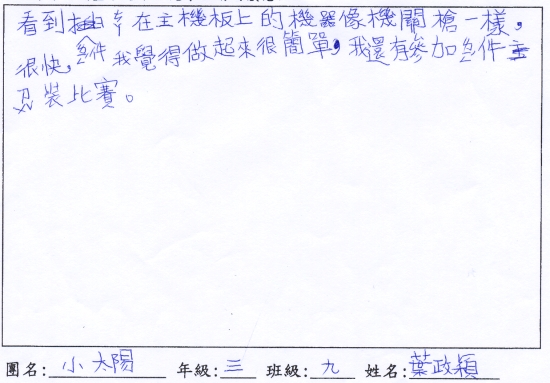 看到插在主機板上的機器像機關槍一樣，
很快，急件我覺得做起來很簡單，我還有參加急件
裝比賽。
團名：小太陽 年級：三 班級：九 姓名：葉政穎